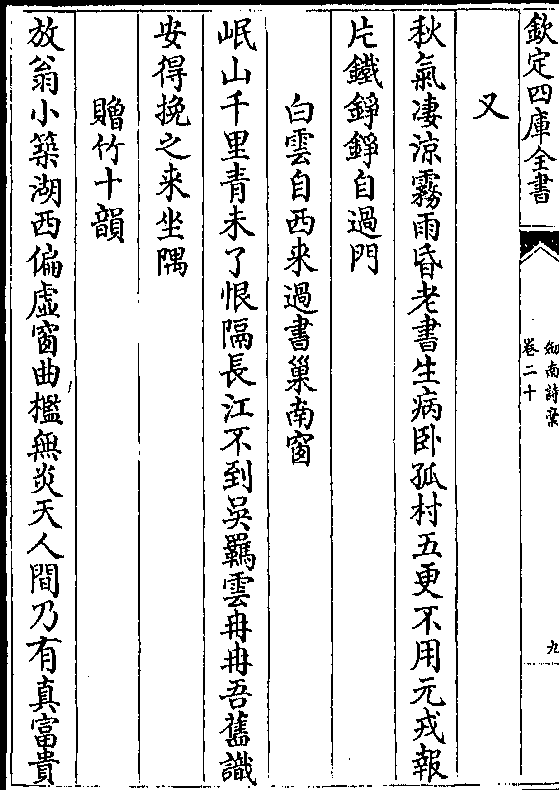 欽定四庫全書
劍南詩稾
卷二十
九
又
秋氣凄涼霧雨昏老書生病卧孤村五更不用元戎報
片鐵錚錚自過門
白雲自西来過書巢南窗
岷山千里青未了恨隔長江不到吳羈雲冉冉吾舊識
安得挽之来坐隅
贈竹十韻
放翁小築湖西偏虛窗曲檻無炎天人間乃有真富貴